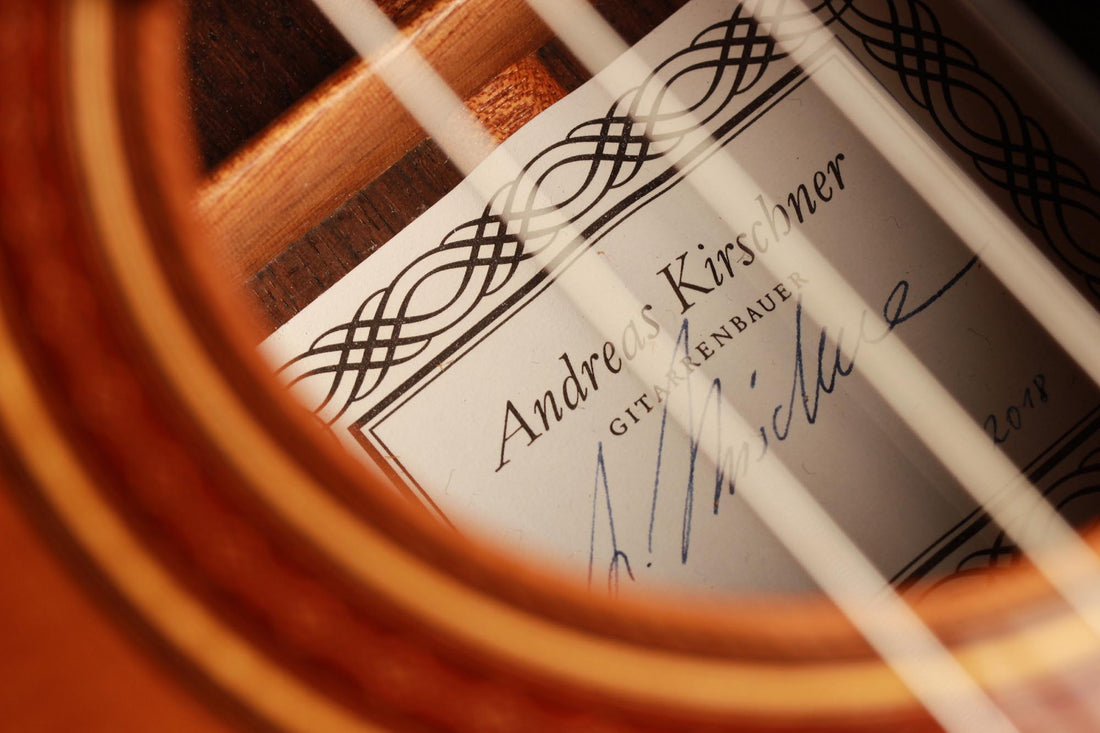 Andreas Kirschner
GITARRENBAUER
A. Kirschner
2018